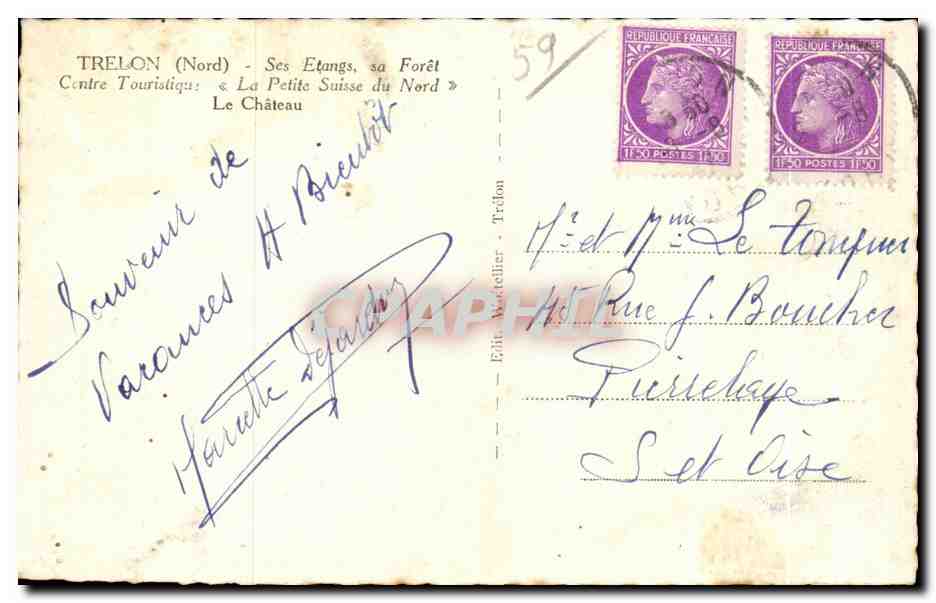 TRELON (Nord) - Ses Etangs, sa Forêt
Centre Touristique « La Petite Suisse du Nord »
Le Château
Souvenir de
Vacances A Bientôt
Mariette Dejardin
Edit. Wattellier - Trélon
59
REPUBLIQUE FRANÇAISE
1F50 POSTES 1F50
REPUBLIQUE FRANÇAISE
1F50 POSTES 1F50
Mr et Mme Le
45 Rue J. Boucher
Pierrelaye
S et Oise
CPAPHIL